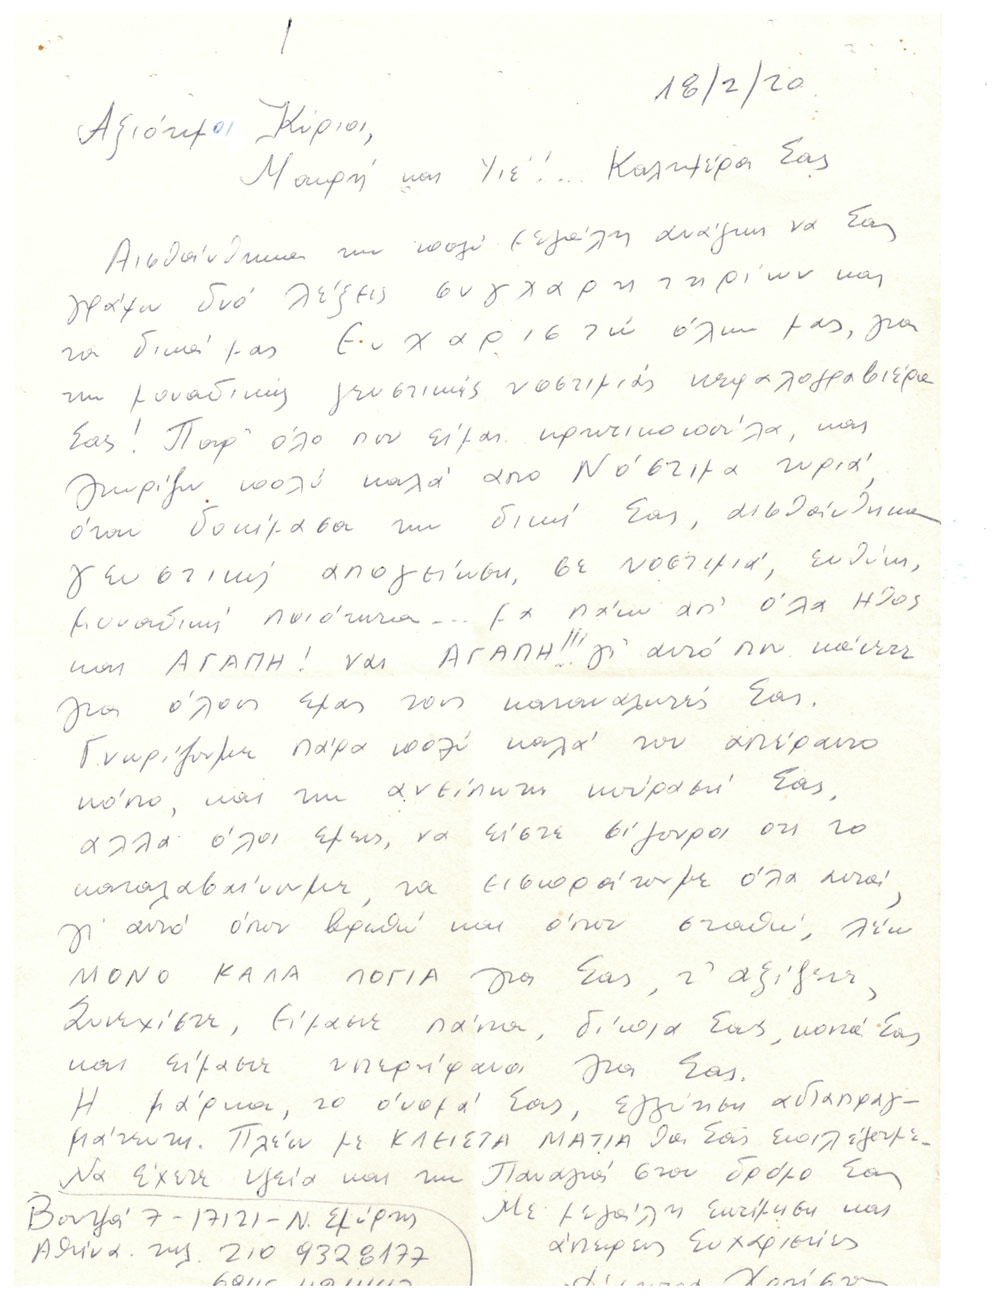 18/2/20
Αξιότιμοι Κύριοι,
Μακρή και Υιέ!... Καλημέρα Σας
Αισθάνθηκα την πολύ μεγάλη ανάγκη να Σας
γράψω δυό λέξεις συγχαρητηρίων και
τα δικά μας Ευχαριστώ όλων μας, για
την μοναδικής γευστικής νοστιμιάς κεφαλογραβιέρα
Σας! Παρ' όλο που είμαι κρητικοπούλα, και
γνωρίζω πολύ καλά απο Νόστιμα τυριά,
όταν δοκίμασα την δική Σας, αισθάνθηκα
γευστική απογείωση, σε νοστιμιά, ευθύνη,
μοναδική ποιότητα... μα πάνω απ' όλα Ηθος
και ΑΓΑΠΗ! ναι ΑΓΑΠΗ!!! γι' αυτό που κάνετε
για όλους εμάς τους καταναλωτές Σας.
Γνωρίζουμε πάρα πολύ καλά τον απέραντο
κόπο, και την ανείπωτη κούρασή Σας,
αλλά όλοι εμείς, να είστε σίγουροι οτι το
καταλαβαίνουμε, τα εισπράττουμε όλα αυτά,
γι' αυτό όπου βρεθώ και όπου σταθώ, λέω
ΜΟΝΟ ΚΑΛΑ ΛΟΓΙΑ για Σας, τ' αξίζετε,
Συνεχίστε, Είμαστε πάντα, δίπλα Σας, κοντά Σας
και είμαστε υπερήφανοι για Σας.
Η μάρκα, το όνομά Σας, εγγύηση αδιαπραγ-
μάτευτη. Πλέον με ΚΛΕΙΣΤΑ ΜΑΤΙΑ θα Σας επιλέγουμε.
Να έχετε υγεία και την Παναγιά στον δρόμο Σας
Με μεγάλη εκτίμηση και
άπειρες Ευχαριστίες
Βουτζά 7-17121-Ν. Σμύρνη
Αθήνα. τηλ. 210 9328177